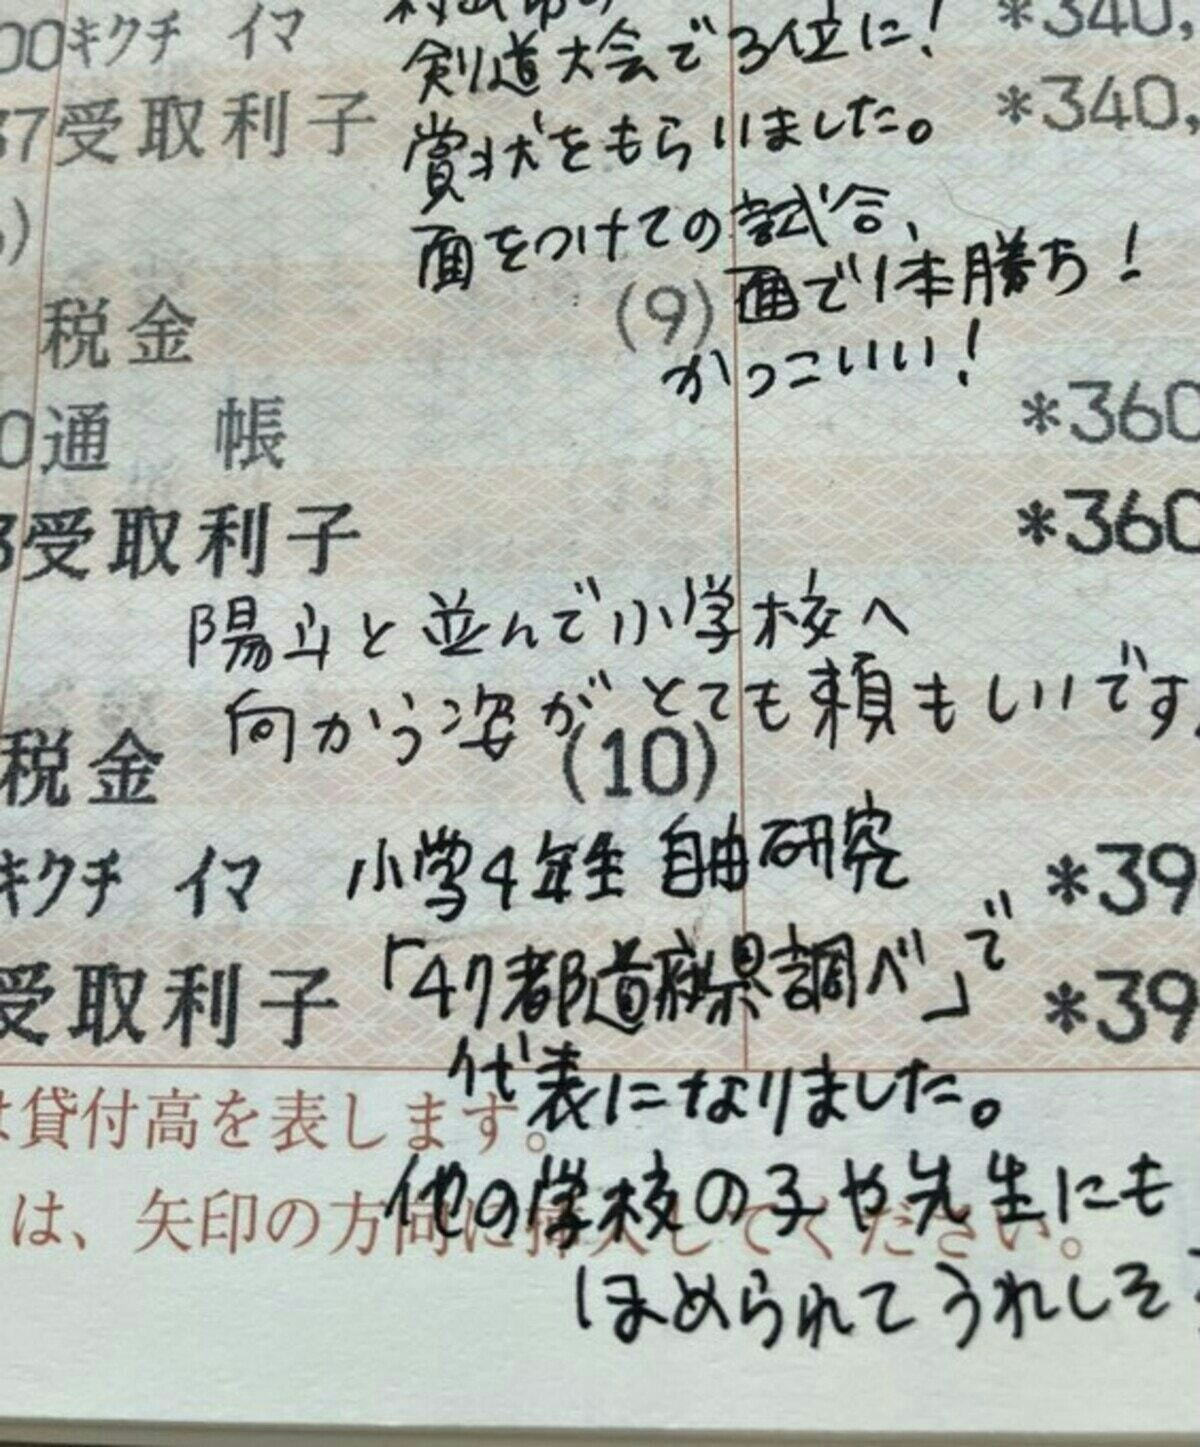 00キクチ イマ *340,
剣道大会で3位に!
37受取利子 *340,
賞状をもらいました。
面をつけての試合、
面で1本勝ち!
税金 (9)
かっこいい!
0通 帳 *360
3受取利子 *360
陽斗と並んで小学校へ
向かう姿がとても頼もしいです
税金 (10)
キクチ イマ *39
小学4年生 自由研究
受取利子 *39
「47都道府県調べ」で
代表になりました。
は貸付高を表します。
他の学校の子や先生にも
は、矢印の方向に挿入してください。
ほめられてうれしそ